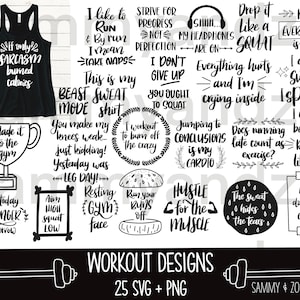 If only
SARCASM
burned
calories
I like to
RUN
& By run
I mean
TAKE NAPS
STRIVE FOR
PROGRESS
NOT
PERFECTION
SHHH...
MY HEADPHONES
ARE ON
Drop it
like a
SQUAT
This is my
BEAST
MODE
SWEAT
shirt
I DON'T
GIVE UP
YOU OUGHT
TO SQUAT
Everything hurts
and I'm
crying inside
Made it
to the
GYM
today
You make my
knees weak.
Just kidding!
Yesterday was
LEG DAY!
I workout
to burn off
the crazy
Jumping to
CONCLUSIONS
is my
CARDIO
Does running
late count as
exercise?
Aim
HIGH
squat
LOW
Resting
GYM
face
Run your
BUNS
off
HUSTLE
for the
MUSCLE
The sweat
hides
the tears
WORKOUT DESIGNS
25 SVG + PNG
SAMMY &